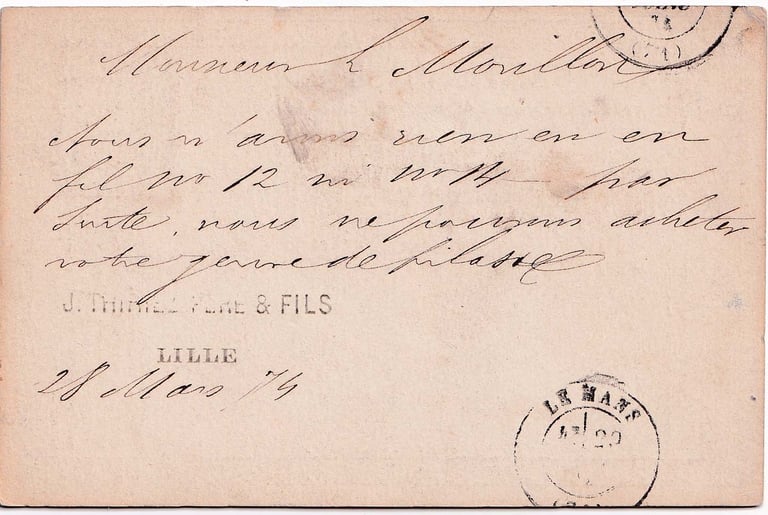 74
(71)
Monsieur L Morillon
Nous n'avons rien en en
fil no 12 ni no 14 par
Suite, nous ne pouvons acheter
votre genre de filasse
J. THIRIEZ PÈRE & FILS
LILLE
28 Mars 74
LE MANS